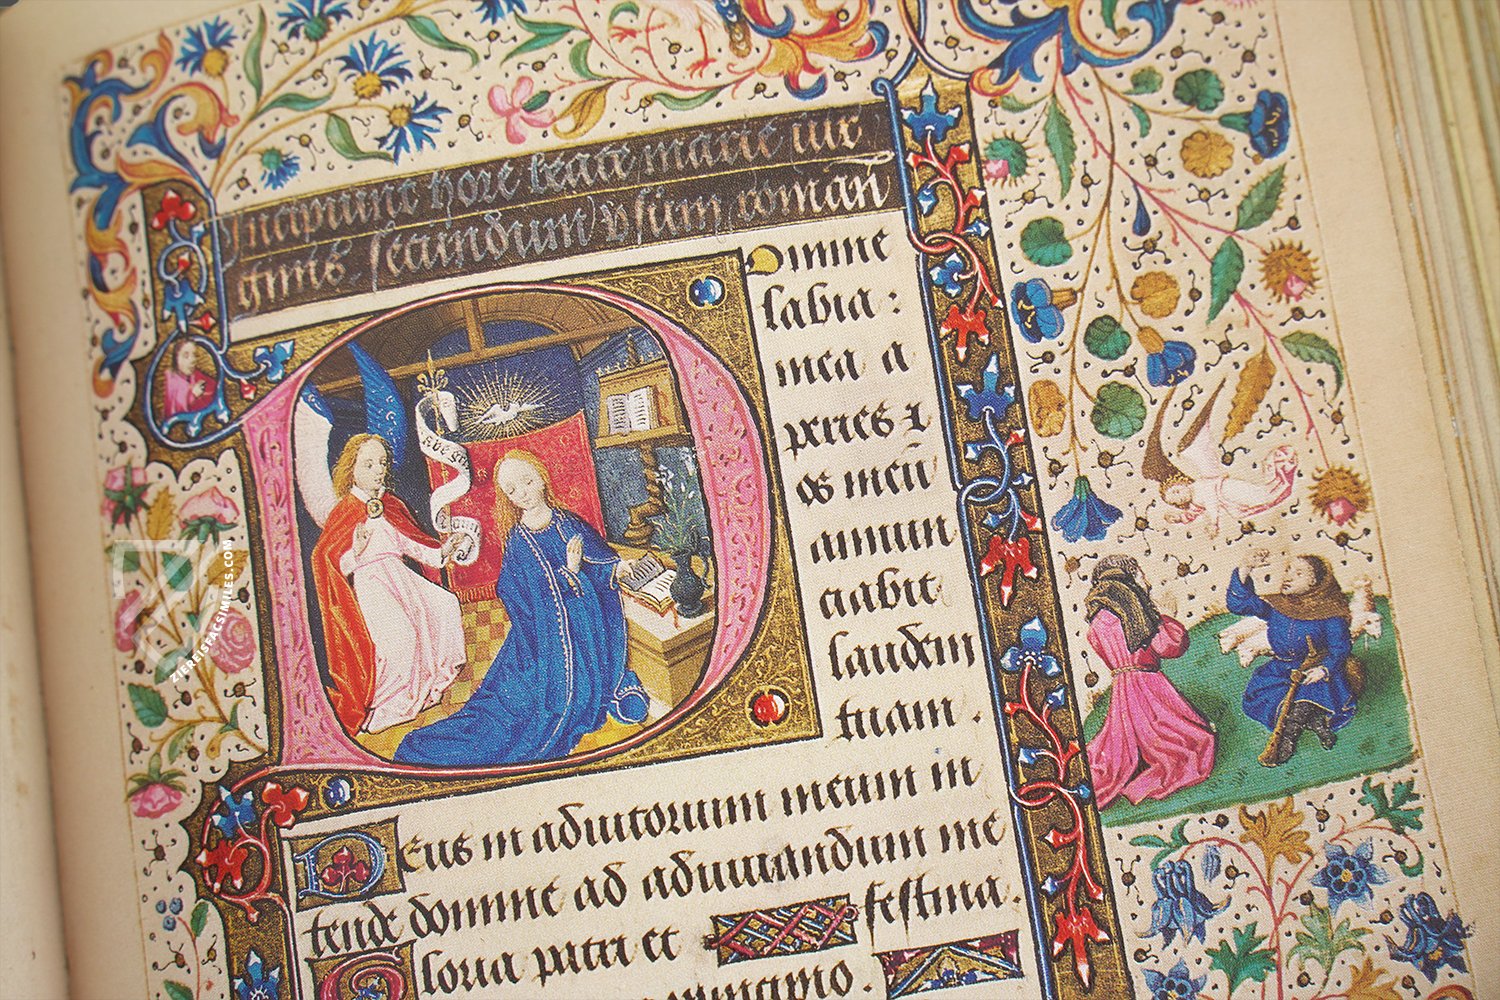 Incipiunt hore beate marie uir
ginis secundum usum roman
Domine
labia:
mea a
peries ⁊
os meū
annun
ciabit
laudem
tuam.
Deus in adiutorium meum in
tende domine ad adiuuandum me
festina.
Gloria patri et
Ave gra
ZIEREISFACSIMILES.COM